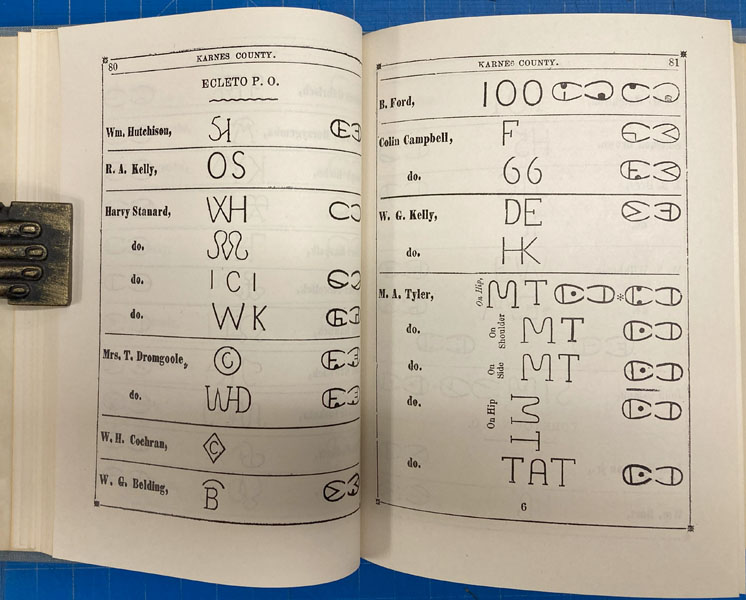 80 KARNES COUNTY.
ECLETO P. O.
Wm. Hutchison, SH
R. A. Kelly, OS
Harvy Stanard, WH
do.
do. ICI
do. WK
Mrs. T. Dromgoole, C
do. WD
W. H. Cochran, C
W. G. Belding, B
KARNES COUNTY. 81
B. Ford, 100
Colin Campbell, F
do. 66
W. G. Kelly, DE
do. HK
M. A. Tyler, On Hip, MT *
do. On Shoulder MT
do. On Side MT
do. On Hip MT
do. TAT
6